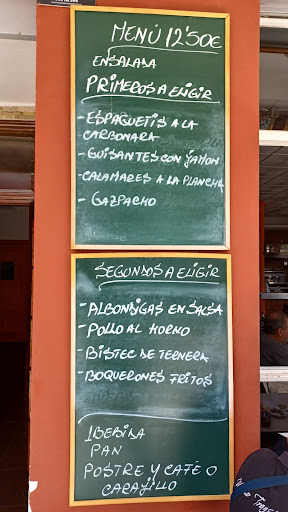 MENÚ 12'50€
ENSALADA
PRIMEROS A ELIGIR
- ESPAGUETIS A LA
CARBONARA
- GUISANTES CON JAMON
- CALAMARES A LA PLANCHA
- GAZPACHO
SEGUNDOS A ELIGIR
- ALBONDIGAS EN SALSA
- POLLO AL HORNO
- BISTEC DE TERNERA
- BOQUERONES FRITOS
1 BEBIDA
PAN
POSTRE Y CAFÉ O
CARAJILLO